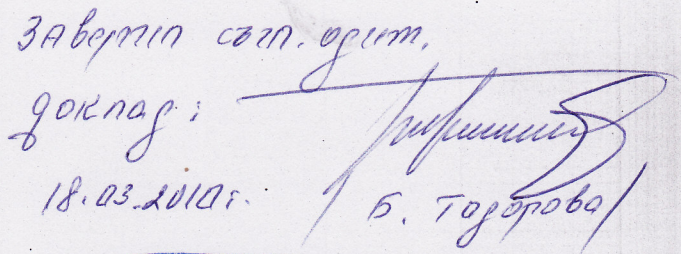 Заверил съгл. одит.
доклад:
18.03.2010г.
Б. Тодорова